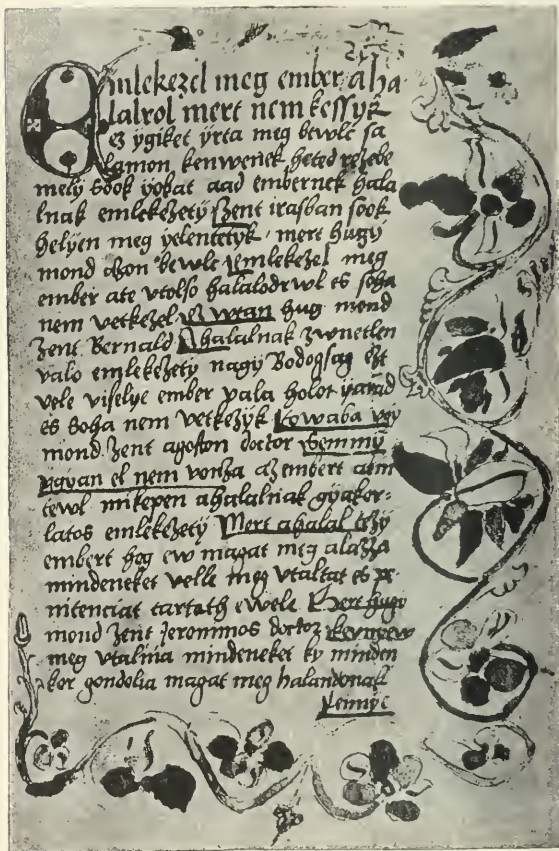 Emlekezel meg ember a ha
lalrol mert nem kessyk
ez ygiket yrta meg bewlc sa
lamon kenwenek heted rezebe
mely Sook yokat aad embernek hala
lnak emlekezety szent irasban sook
helyen meg yelentetyk · mert hugy
mond azon bewlc Emlekezel meg
ember ate vtolso halalodrwl es soha
nem vetkezel ez vtan hug mond
zent Bernald A halalnak zwnetlen
valo emlekezety nagy Bodogsag ezt
vele viselye ember vala holot yarand
es Soha nem vetkezyk Towaba vgy
mond zent agoston doctor Semmy
vgyan el nem vonza az embert a bin
tewl mikepen a halalnak gyakor-
latos emlekezety Mert a halal tezy
embert hog ew magat meg alazza
mindeneket velle meg vtaltat es pe-
nitenciat tartath ewele Mert hugy
mond zent Jeronimos doctor kenyew
meg vtalnia mindeneket ky minden
kor gondolia magat meg halandonak
kennye